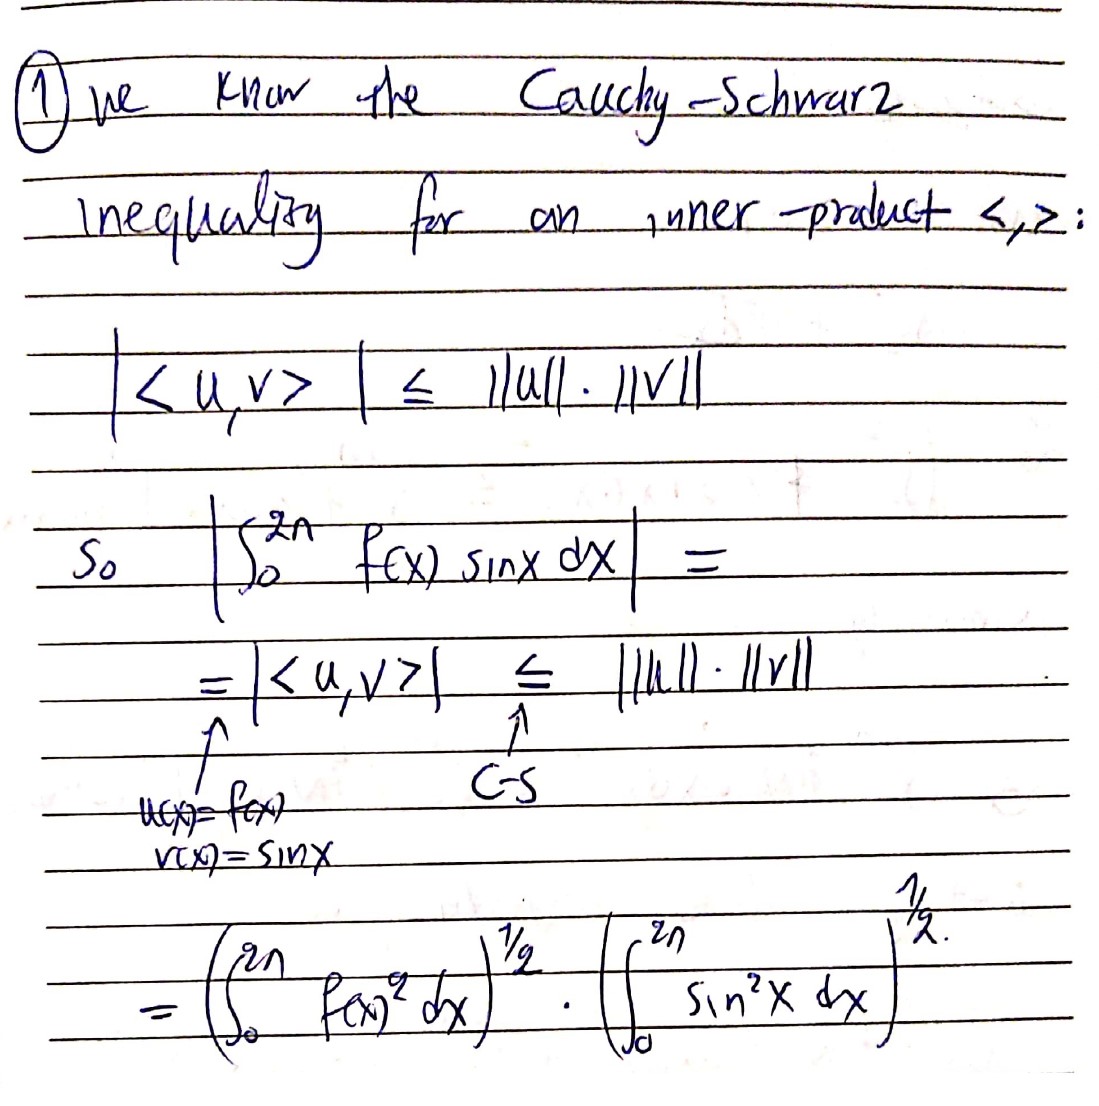 ① we know the Cauchy-Schwarz
inequality for an inner-product <,>:
|<u,v>| ≤ ||u||·||v||
So |∫₀^{2π} f(x) sinx dx| =
= |<u,v>| ≤ ||u||·||v||
↑ ↑
C-S
u(x)=f(x)
v(x)=sinx
= (∫₀^{2π} f(x)² dx)^{1/2} · (∫₀^{2π} sin²x dx)^{1/2}.